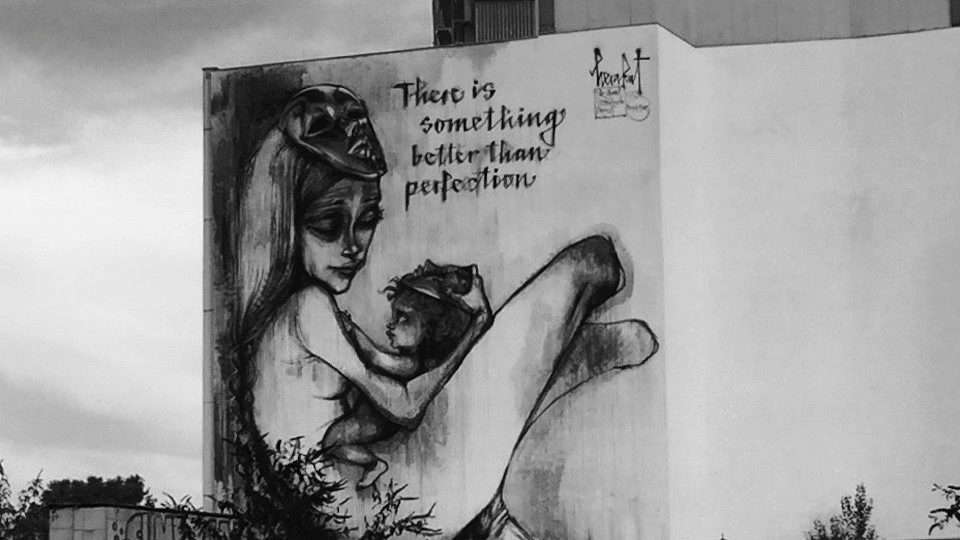 There is
something
better than
perfection